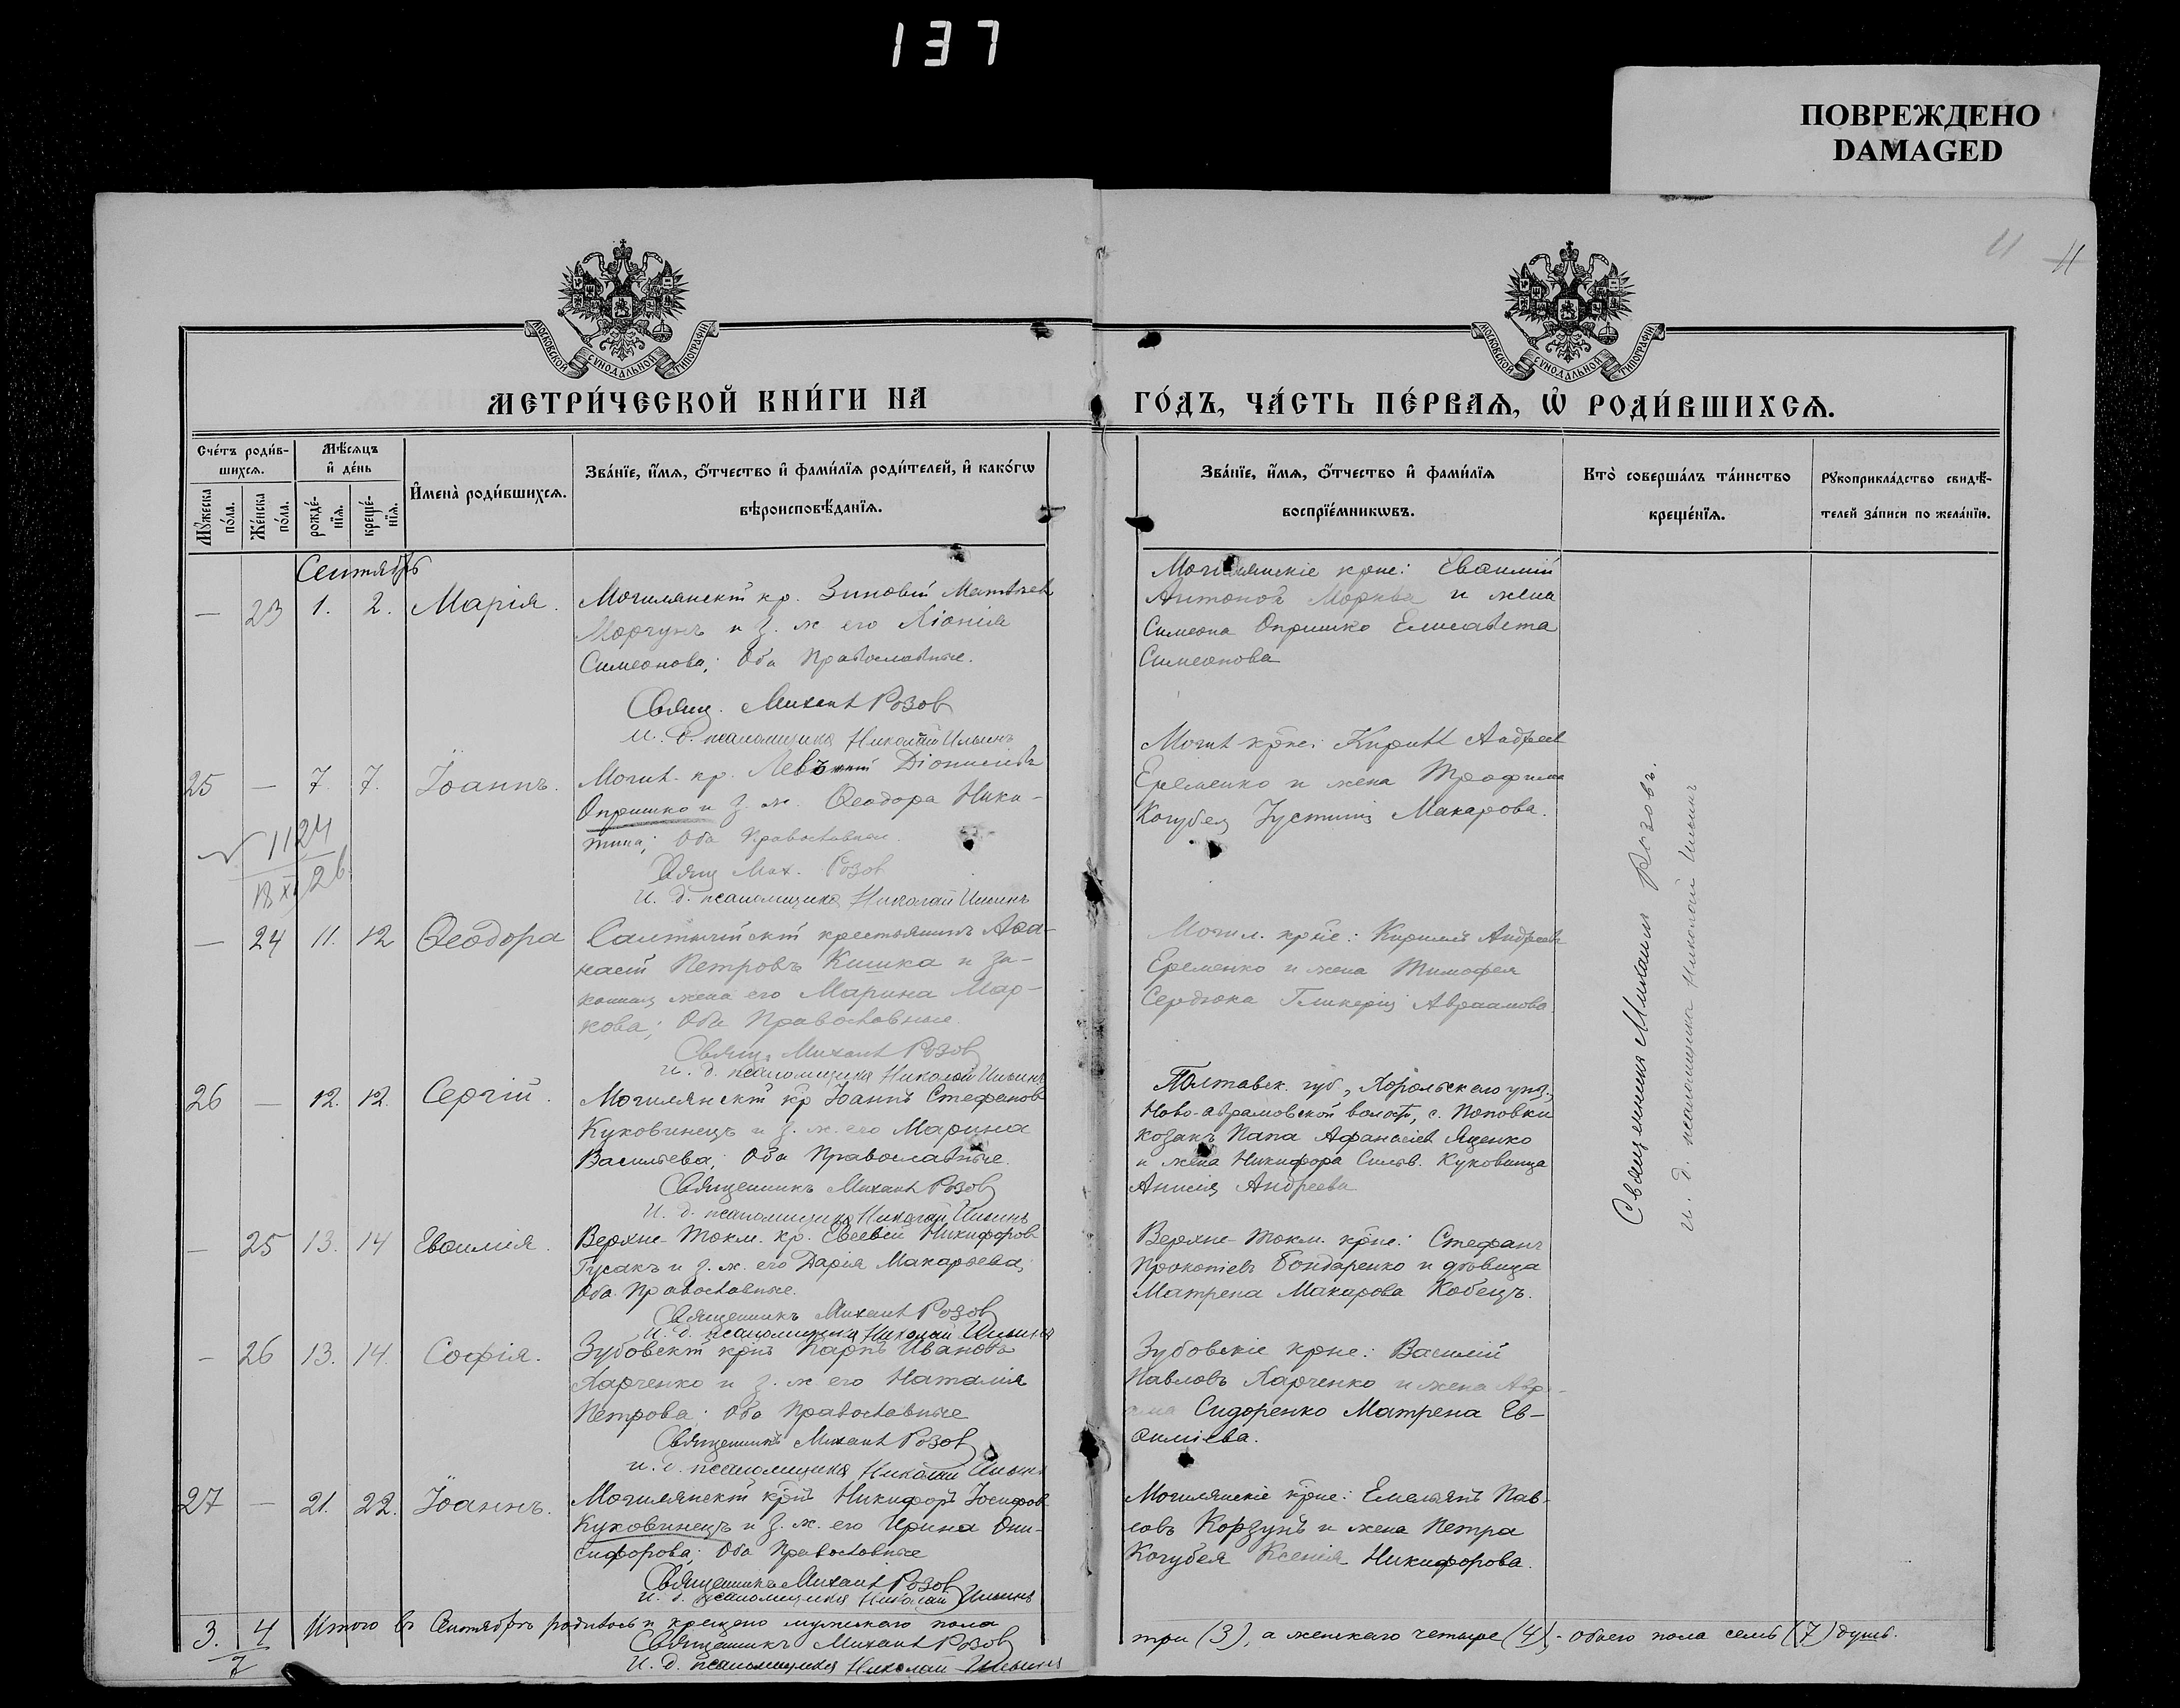 137
ПОВРЕЖДЕНО
DAMAGED
11 11
МОСКОВСКОЙ СѴНОДАЛЬНОЙ ТИПОГРАФІИ
МОСКОВСКОЙ СѴНОДАЛЬНОЙ ТИПОГРАФІИ
МЕТРИ́ЧЕСКОЙ КНИ́ГИ НА
ГО́ДЪ, ЧА́СТЬ ПЕ́РВАѦ, Ѡ҆ РОДИ́ВШИХСѦ.
Сче́тъ роди́в-
шихсѧ.
Мꙋ́жеска по́ла.
Же́нска по́ла.
Мѣ́сѧцъ и҆ де́нь
рожде́-нїѧ.
креще́-нїѧ.
И҆мена̀ роди́вшихсѧ.
Зва́нїе, и҆́мѧ, ѻ҆́тчество и҆ фами́лїѧ роди́телей, и҆ како́гѡ
вѣроисповѣ́данїѧ.
Зва́нїе, и҆́мѧ, ѻ҆́тчество и҆ фами́лїѧ
воспрїе́мникѡвъ.
Кто̀ соверша́лъ та́инство
креще́нїѧ.
Рꙋкоприкла́дство свидѣ́-
телей за́писи по жела́нїю.
Сентябрь
— 23 1. 2. Марія.
Могилянскій кр. Зиновій Матвѣев
Моргунъ и з. ж. его Хіонія
Симеонова; Оба Православные.
Свящ. Михаил Розов
И. д. псаломщика Николай Ильинъ
Могилянскіе крне: Евѳимій
Антонов Морква и жена
Симеона Опришко Елисавета
Симеонова
25 — 7. 7. Іоаннъ.
Могил. кр. Левъ Діонисіевъ
Опришко и з. ж. Ѳеодора Ники-
тина; Оба Православные.
Свящ Мих. Розов
И. д. псаломщика Николай Ильинъ
Могил крне: Кирилл Андреев
Еременко и жена Трофима
Кочубея Іустинія Макарова.
1124
18 XI 26
— 24 11. 12 Ѳеодора
Салтычійскій крестьянинъ Аѳа-
насій Петровъ Кишка и за-
конная жена его Марина Мар-
кова; Оба Православные.
Свящ. Михаил Розов
И. д. псаломщика Николай Ильинъ
Могил. крне: Кириллъ Андреевъ
Еременко и жена Тимофея
Сердюка Гликерія Авраамова.
26 — 12. 12. Сергій.
Могилянскій кр Іоаннъ Стефанов
Куковинецъ и з. ж. его Марина
Васильева; Оба Православные.
Священникъ Михаил Розов
И. д. псаломщика Николай Ильинъ
Полтавск. губ., Хорольскаго уѣз.,
Ново-аврамовской волости, с. Поповки
козакъ Папа Афанасіев Яценко
и жена Никифора Сильв. Куковинца
Анисія Андреева
— 25 13. 14 Евѳимія.
Верхне-Токм. кр. Евсевій Никифоров
Гусакъ и з. ж. его Дарія Макарьева;
Оба Православные.
Священникъ Михаил Розов
И. д. псаломщика Николай Ильинъ
Верхне-Токм. крне: Стефанъ
Прокопіевъ Бондаренко и дѣвица
Матрена Макарова Кобецъ.
— 26 13. 14. Софія.
Зубовскій крнъ Карпъ Ивановъ
Харченко и з. ж его Наталія
Петрова; Оба Православные
Священникъ Михаил Розов
И. д. псаломщика Николай Ильинъ
Зубовскіе крне: Василій
Павловъ Харченко и жена
Сидоренко Матрена Ев-
ѳиміева.
27 — 21. 22. Іоаннъ.
Могилянскій крнъ Никифоръ Іосифов
Куковинецъ и з. ж. его Ирина Они-
сифорова; Оба Православные
Священникъ Михаил Розов
И. д. псаломщика Николай Ильинъ
Могилянскіе крне: Емельянъ Пав-
ловъ Корзунъ и жена Петра
Кочубея Ксенія Никифорова.
Священникъ Михаилъ Розовъ.
и. д. псаломщика Николай Ильинъ
3. 4 Итого въ Сентябрѣ родилось и крещено мужскаго пола
три (3), а женскаго четыре (4), - обоего пола семь (7) душъ.
7
Священникъ Михаил Розов
И. д. псаломщика Николай Ильинъ